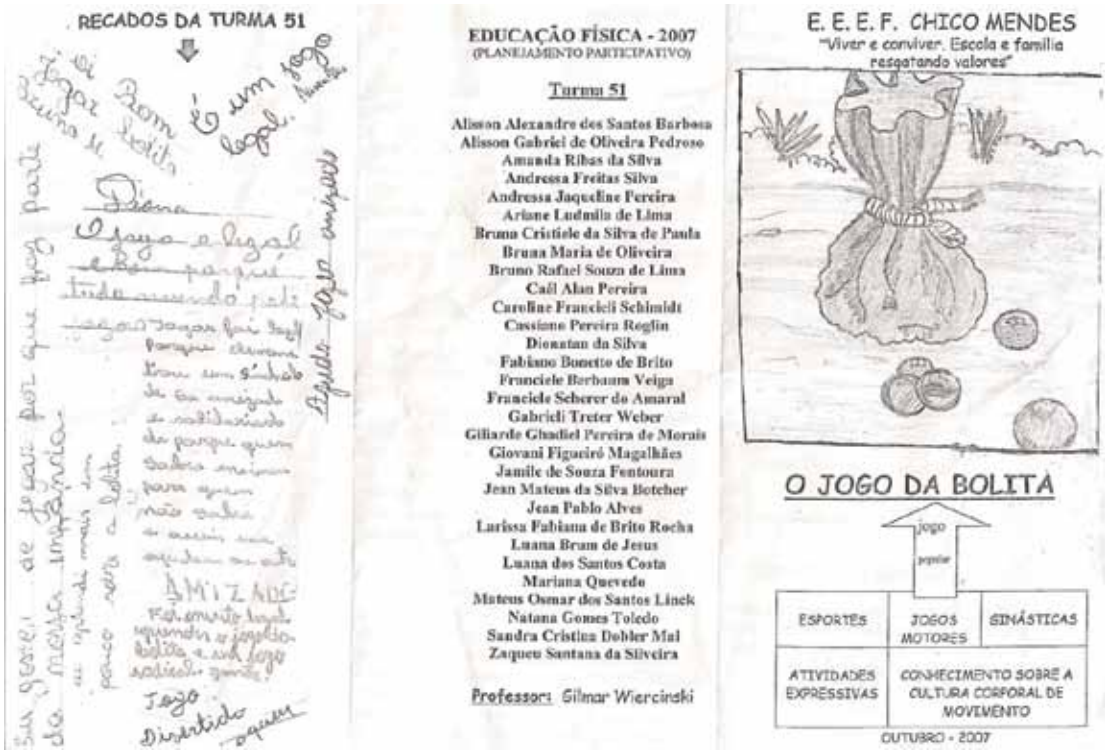 RECADOS DA TURMA 51
Oi Bom
jogar bolita
Bruna M.
É um jogo
legal.
Diana
O jogo e legal
e bom porque
todo mundo pode
jogar
Jogar foi legal
porque
um símbolo
de amizade
e solidariedade
porque quem
para quem
não
AMIZADE
Foi muito legal
aprender o jogo da
bolita e um jogo
Jogo
Divertido
jogo amizade
Eu gostei de jogar por que faz parte
da nossa infância
eu aprendi mais um
pouco sobre a bolita.
EDUCAÇÃO FÍSICA - 2007
(PLANEJAMENTO PARTICIPATIVO)
Turma 51
Alisson Alexandre dos Santos Barbosa
Alisson Gabriel de Oliveira Pedroso
Amanda Ribas da Silva
Andressa Freitas Silva
Andressa Jaqueline Pereira
Ariane Ludmila de Lima
Bruna Cristiele da Silva de Paula
Bruna Maria de Oliveira
Bruno Rafael Souza de Lima
Caél Alan Pereira
Caroline Francieli Schimidt
Cassiano Pereira Roglin
Dionatan da Silva
Fabiano Bonetto de Brito
Franciele Berbaum Veiga
Franciele Scherer do Amaral
Gabrieli Treter Weber
Giliarde Ghadiel Pereira de Morais
Giovani Figueiró Magalhães
Jamile de Souza Fontoura
Jean Mateus da Silva Botcher
Jean Pablo Alves
Larissa Fabiana de Brito Rocha
Luana Brum de Jesus
Luana dos Santos Costa
Mariana Quevedo
Mateus Osmar dos Santos Linck
Natana Gomes Toledo
Sandra Cristina Dobler Mai
Zaqueu Santana da Silveira
Professor: Gilmar Wiercinski
E. E. E. F. CHICO MENDES
"Viver e conviver. Escola e família
resgatando valores"
O JOGO DA BOLITA
jogo
popular
ESPORTES
JOGOS
MOTORES
GINÁSTICAS
ATIVIDADES
EXPRESSIVAS
CONHECIMENTO SOBRE A
CULTURA CORPORAL DE
MOVIMENTO
OUTUBRO - 2007